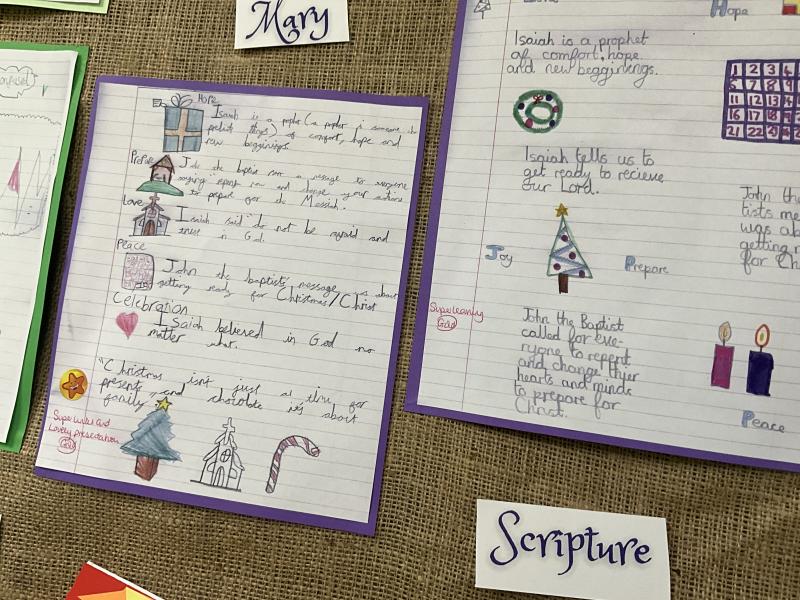 Mary
Hope
Isaiah is a prophet (a prophet is someone who
predicts things) of comfort, hope and
new beginnings.
Prepare
John the baptist ran a message to everyone
saying repent now and change your actions
to prepare for the Messiah.
Love
Isaiah said do not be afraid and
trust in God.
Peace
John the baptists message was about
getting ready for Christmas/Christ
Celebration
Isaiah believed in God no
matter what.
"Christmas isn't just a time for
presents and chocolate it's about
family."
Super work and
Lovely presentation
Gold
Hope
Isaiah is a prophet
of comfort, hope
and new begginings.
1 2 3 4
11 12 13 14
21 22 23 24
Isaiah tells us to
get ready to recieve
our Lord.
John the
tists me
was ab
getting r
for Ch
Joy
Prepare
Super learning
Gold
John the Baptist
called for eve-
ryone to repent
and change thier
hearts and minds
to prepare for
Christ.
Peace
Scripture